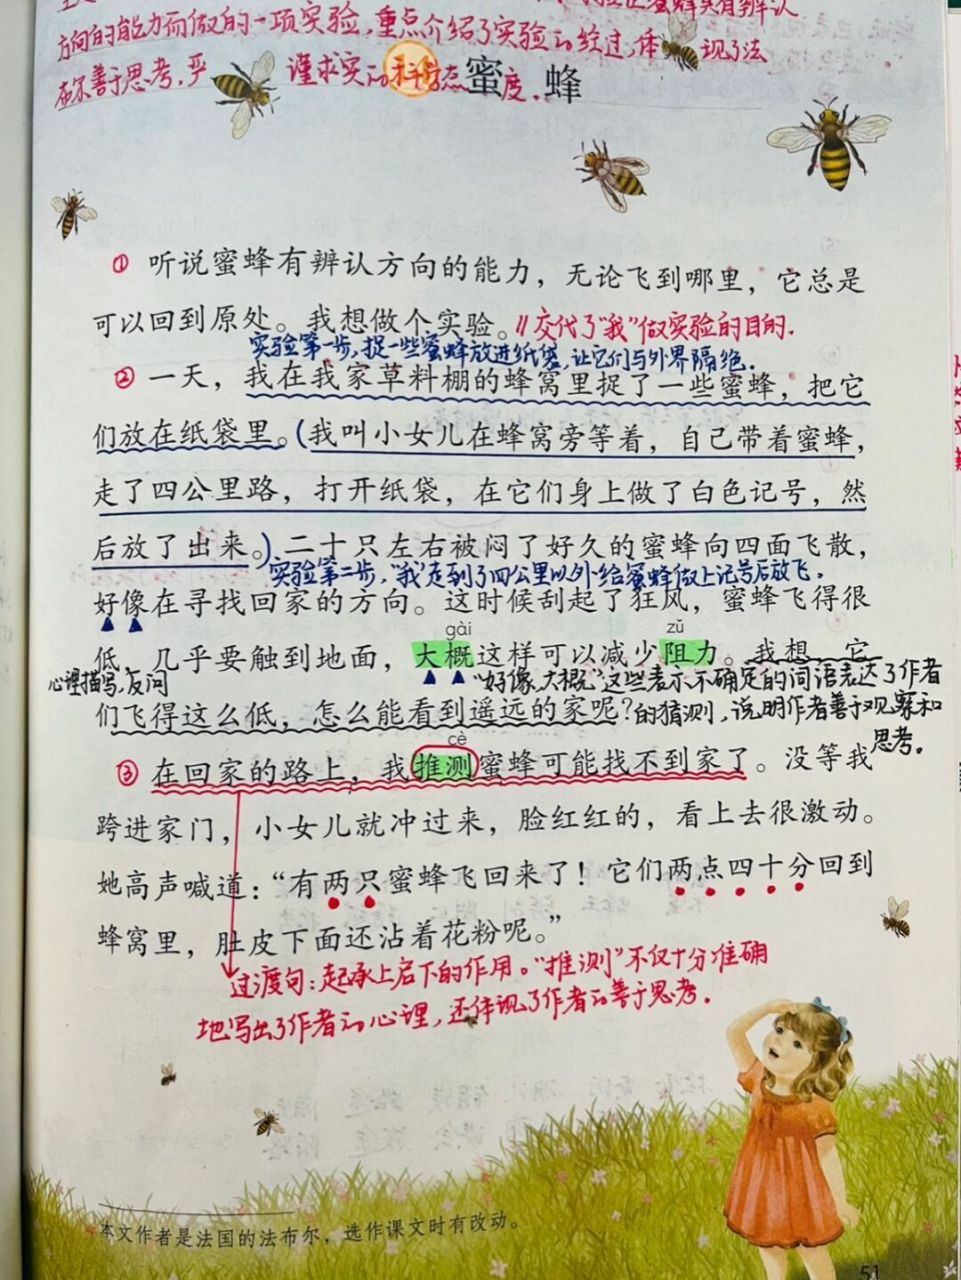 方向的能力而做的一项实验，重点介绍了实验的经过，体现了法
布尔善于思考、严谨求实的科学态度。
蜜蜂
① 听说蜜蜂有辨认方向的能力，无论飞到哪里，它总是
可以回到原处。我想做个实验。//交代了“我”做实验的目的.
实验第一步，捉一些蜜蜂放进纸袋，让它们与外界隔绝。
② 一天，我在我家草料棚的蜂窝里捉了一些蜜蜂，把它
们放在纸袋里。(我叫小女儿在蜂窝旁等着，自己带着蜜蜂，
走了四公里路，打开纸袋，在它们身上做了白色记号，然
后放了出来。)二十只左右被闷了好久的蜜蜂向四面飞散，
实验第二步，“我”走到了四公里以外给蜜蜂做上记号后放飞。
好像在寻找回家的方向。这时候刮起了狂风，蜜蜂飞得很
gài zǔ
低，几乎要触到地面，大概这样可以减少阻力。我想，它
心理描写，反问
“好像、大概”这些表示不确定的词语表达了作者
们飞得这么低，怎么能看到遥远的家呢？的猜测，说明作者善于观察和
思考。
cè
③ 在回家的路上，我推测蜜蜂可能找不到家了。没等我
跨进家门，小女儿就冲过来，脸红红的，看上去很激动。
她高声喊道：“有两只蜜蜂飞回来了！它们两点四十分回到
蜂窝里，肚皮下面还沾着花粉呢。”
过渡句：起承上启下的作用。“推测”不仅十分准确
地写出了作者的心理，还体现了作者的善于思考.
本文作者是法国的法布尔，选作课文时有改动。
51